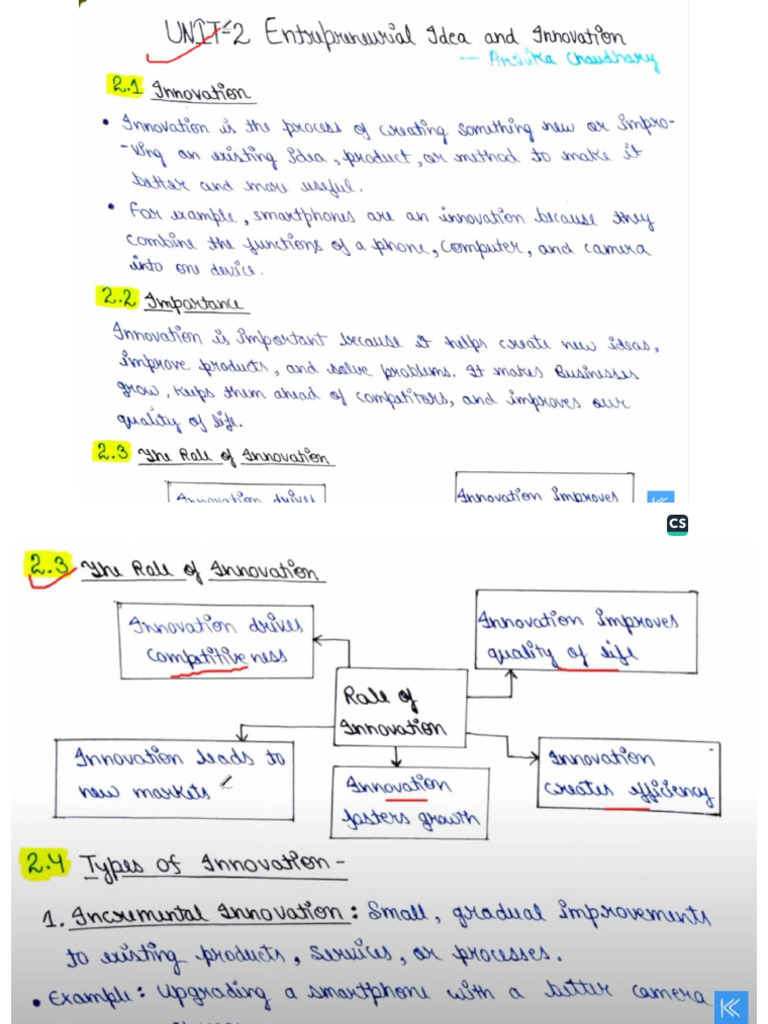 UNIT-2 Entrepreneurial Idea and Innovation
— Anshika Chaudhary
2.1 Innovation
• Innovation is the process of creating something new or impro-
-ving an existing idea, product, or method to make it
better and more useful.
• For example, smartphones are an innovation because they
combine the functions of a phone, computer, and camera
into one device.
2.2 Importance
Innovation is important because it helps create new ideas,
improve products, and solve problems. It makes Businesses
grow, keeps them ahead of competitors, and improves our
quality of life.
2.3 The Role of Innovation
Innovation drives
Innovation Improves
CS
2.3 The Role of Innovation
Innovation drives
competitiveness
Innovation improves
quality of life
Role of
Innovation
Innovation leads to
new markets
Innovation
fosters growth
Innovation
creates efficiency
2.4 Types of Innovation-
1. Incremental Innovation: Small, gradual improvements
to existing products, services, or processes.
• Example: Upgrading a smartphone with a better camera